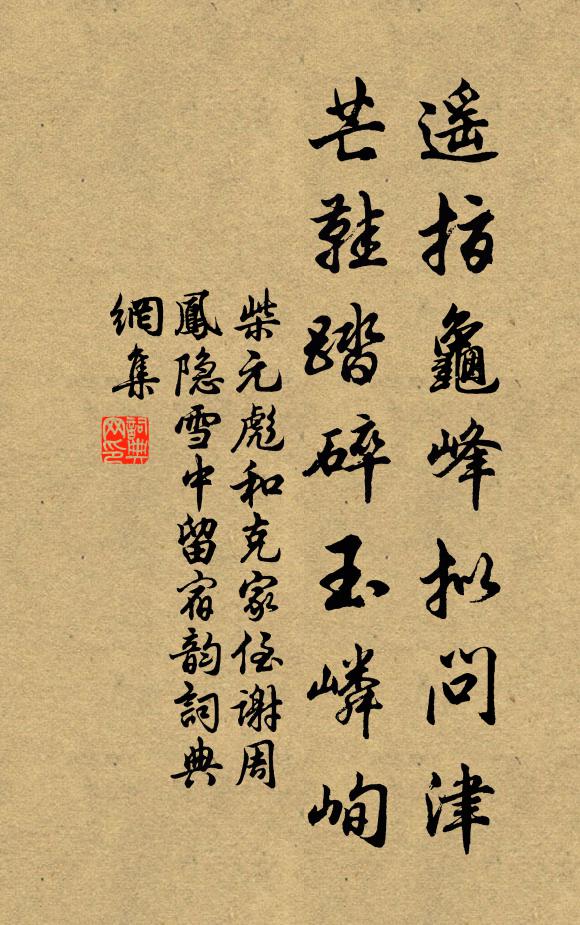 遥指龜峰拟问津
芒鞋踏碎玉嶙峋
柴元彪和克家侄谢周
鳳隐雪中留宿韵詞典
網集
詞典网印